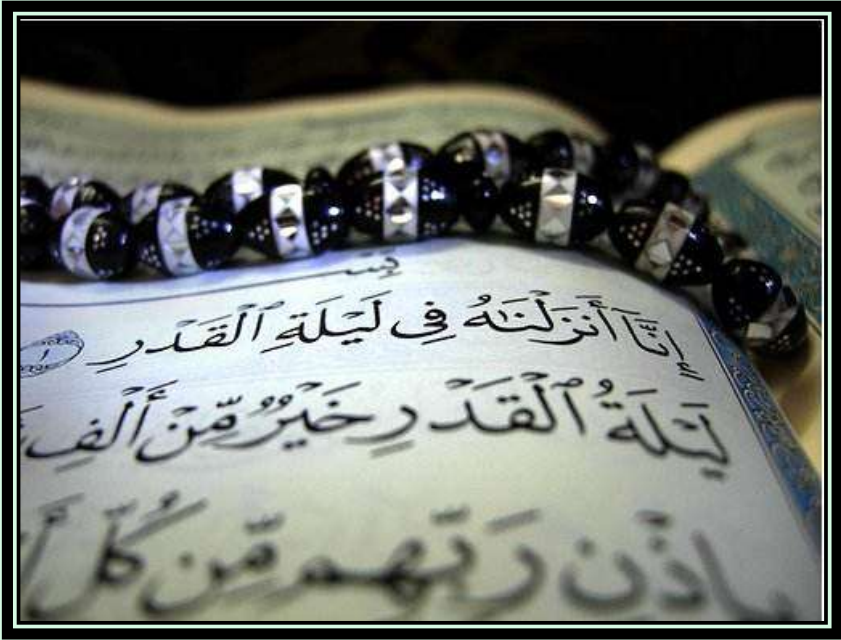 بِسْ
إِنَّآ أَنزَلْنَٰهُ فِى لَيْلَةِ ٱلْقَدْرِ ١
لَيْلَةُ ٱلْقَدْرِ خَيْرٌ مِّنْ أَلْفِ
بِإِذْنِ رَبِّهِم مِّن كُلِّ أَ